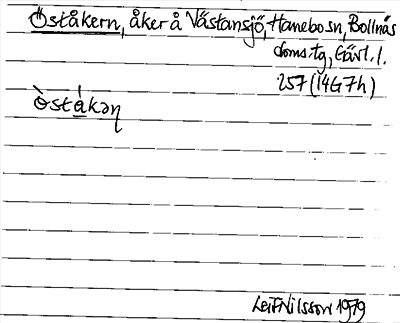 Öståkern, åker å Västansjö, Hanebo sn, Bollnäs
doms.tg, Gävl.l.
257 (14G7h)
Òstá̱kəɳ
Leif Nilsson 1979